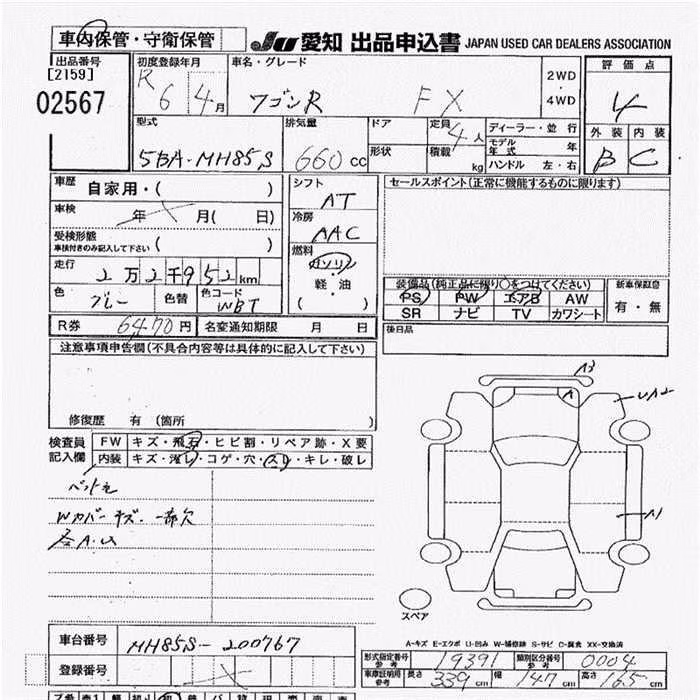 車内保管・守衛保管
JU 愛知 出品申込書 JAPAN USED CAR DEALERS ASSOCIATION
出品番号 [2159] 02567
初度登録年月 R 6 4月
車名・グレード ワゴンR FX
2WD・4WD
評価点 4
外装 B 内装 C
型式 5BA-MH85S
排気量 660cc
ドア 形状
定員 4人
積載 kg
ディーラー・並行
モデル年式 年
ハンドル 左・右
車歴 自家用・( )
車検 年 月( 日)
受検形態 車検付きのみ記入して下さい ( )
走行 2万2千952km
色 グレー 色替 色コード WBT
シフト AT
冷房 AAC
燃料 ガソリン・軽・油 ( )
セールスポイント(正常に機能するものに限ります)
装備品(純正品に限り○をつけてください)
PS PW エアB AW
SR ナビ TV カワシート
新車保証書 有・無
R券 6470円 名変通知期限 月 日
後日品
注意事項申告欄(不具合内容等は具体的に記入して下さい)
修復歴 有 (箇所 )
検査員記入欄
FW キズ・飛石・ヒビ割・リペア跡・X要
内装 キズ・汚レ・コゲ・穴・スリ・キレ・破レ
ペット毛
Wカバーキズ・一部欠
各A.U
A3
A
UA2
A1
スペア
A-キズ E-エクボ U-凹み W-補修跡 S-サビ C-腐食 XX-交換済
車台番号 MH85S-200767
登録番号
形式指定番号参考 19391 類別区分番号参考 0004
車庫証明用参考 長さ 339cm 幅 147cm 高さ 165cm